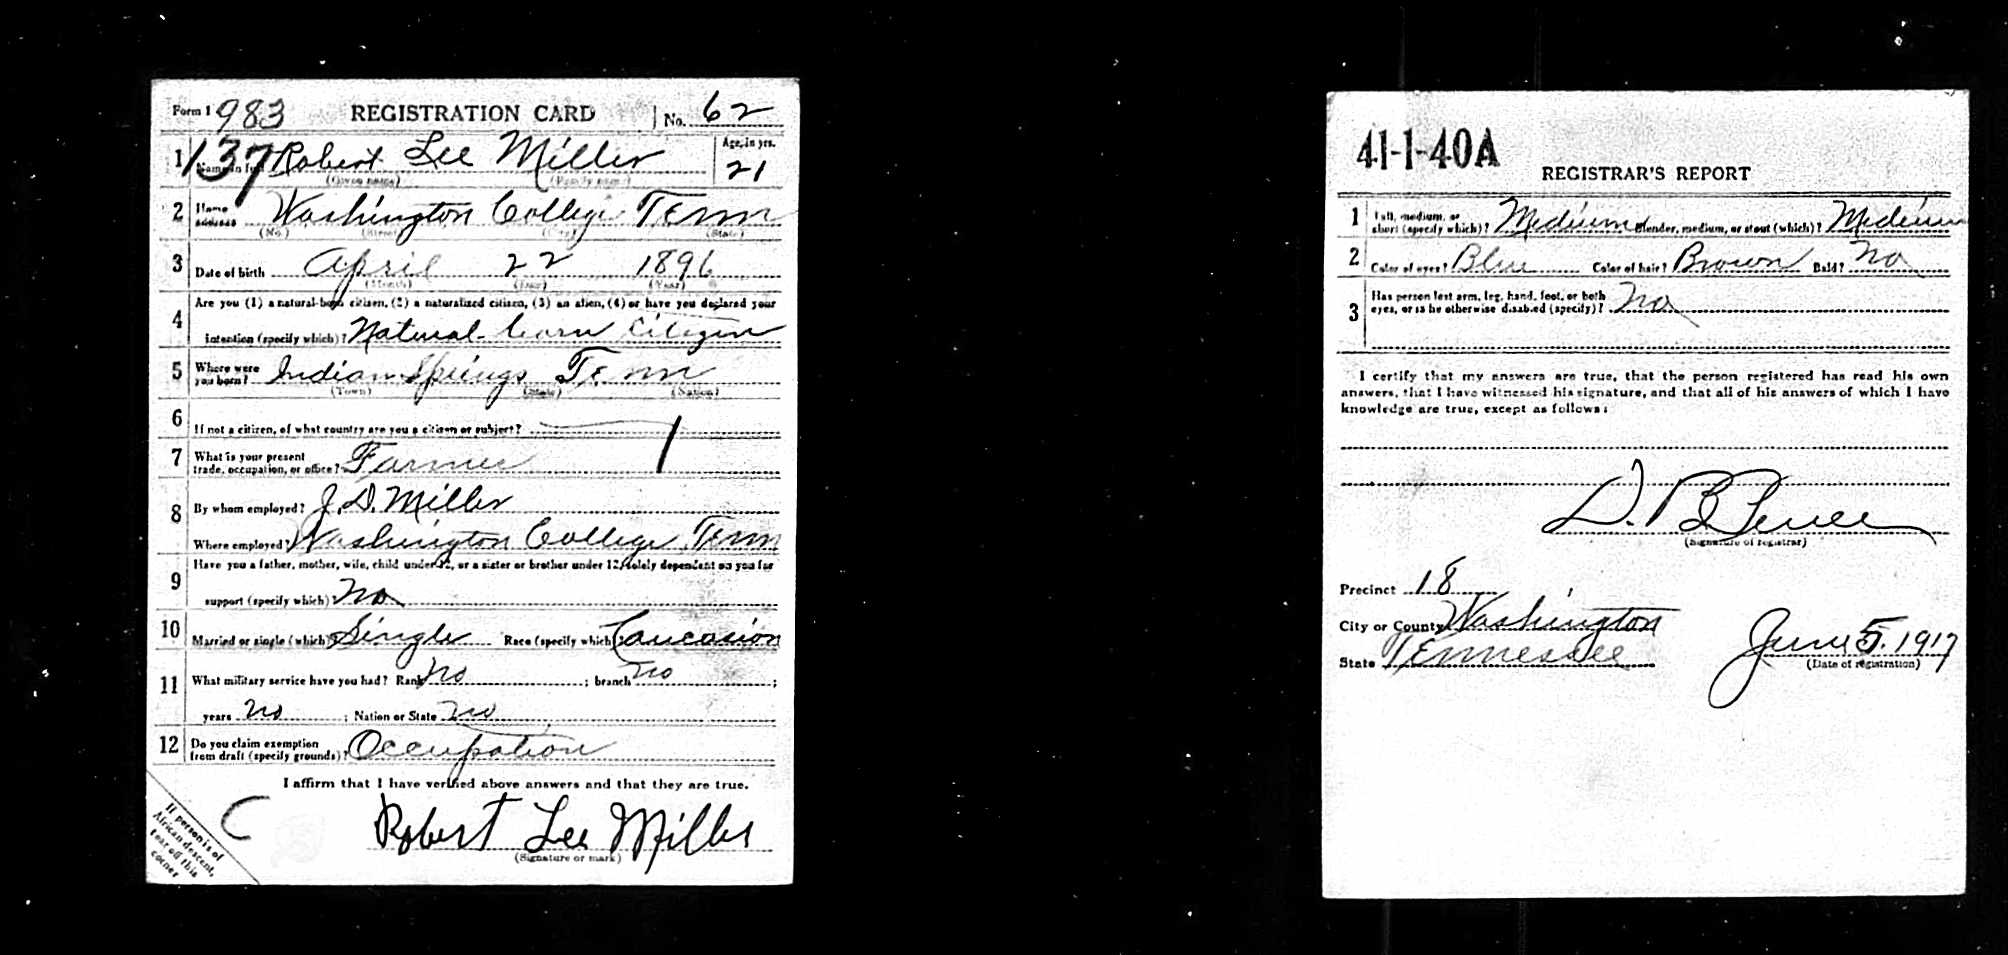 Form 1 983 REGISTRATION CARD No. 62
1 137 Name in full Robert Lee Miller Age, in yrs. 21
(Given name) (Family name)
2 Home address Washington College Tenn
(No.) (Street) (City) (State)
3 Date of birth April 22 1896
(Month) (Day) (Year)
4 Are you (1) a natural-born citizen, (2) a naturalized citizen, (3) an alien, (4) or have you declared your
intention (specify which)? Natural-born Citizen
5 Where were you born? Indian Springs Tenn
(Town) (State) (Nation)
6 If not a citizen, of what country are you a citizen or subject?
7 What is your present
trade, occupation, or office? Farmer 1
8 By whom employed? J. D. Miller
Where employed? Washington College Tenn
9 Have you a father, mother, wife, child under 12, or a sister or brother under 12, solely dependent on you for
support (specify which)? No
10 Married or single (which)? Single Race (specify which)? Caucasion
11 What military service have you had? Rank No ; branch no ;
years no ; Nation or State no
12 Do you claim exemption
from draft (specify grounds)? Occupation
I affirm that I have verified above answers and that they are true.
C Robert Lee Miller
(Signature or mark)
If person is of
African descent,
tear off this
corner
41-1-40A
REGISTRAR'S REPORT
1 Tall, medium, or
short (specify which)? Medium Slender, medium, or stout (which)? Medium
2 Color of eyes? Blue Color of hair? Brown Bald? No
3 Has person lost arm, leg, hand, foot, or both
eyes, or is he otherwise disabled (specify)? No
I certify that my answers are true, that the person registered has read his own
answers, that I have witnessed his signature, and that all of his answers of which I have
knowledge are true, except as follows:
D. B.
(Signature of registrar)
Precinct 18
City or County Washington
State Tennessee June 5. 1917
(Date of registration)